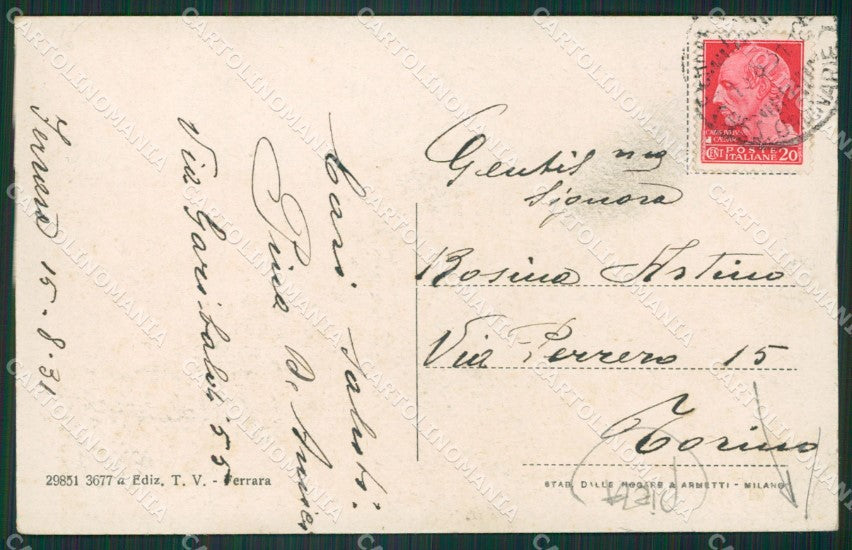 Ferrara 15-8-31
Via Garibaldi 55
Cari saluti
Pina De
Gentil.ma
Signora
Rosina Artino
Via Perrero 15
Torino
POSTE
ITALIANE
CENT 20
29851 3677 a Ediz. T. V. - Ferrara
STAB. DALLE NOGARE & ARMETTI - MILANO
CARTOLINOMANIA